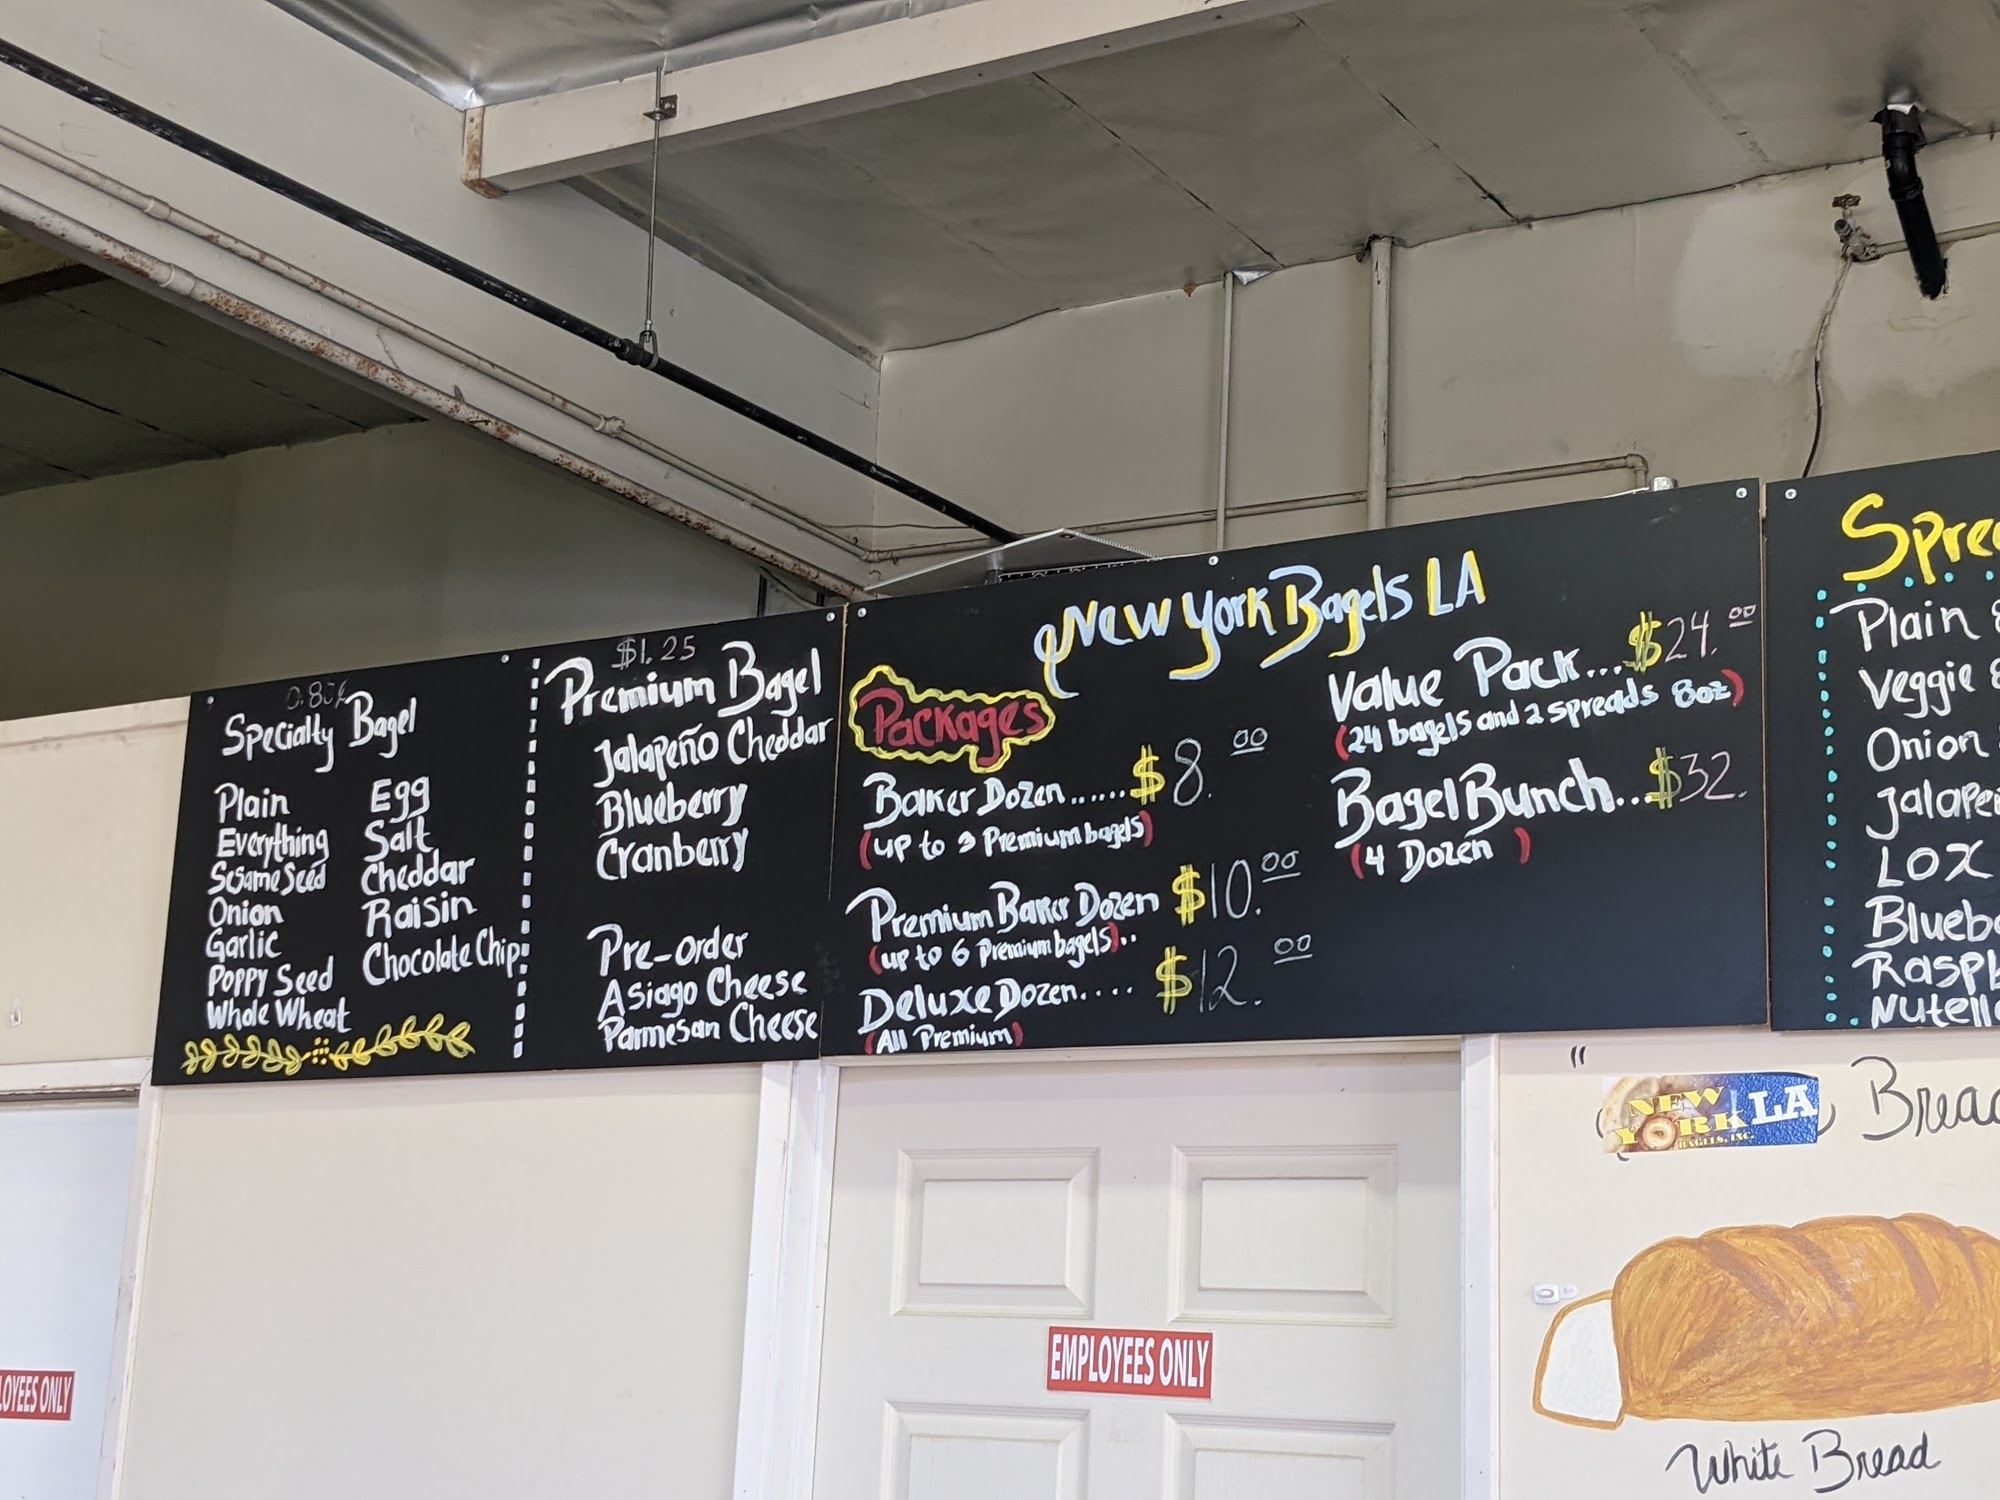 0.80¢
Specialty Bagel
Plain
Everything
Sesame Seed
Onion
Garlic
Poppy Seed
Whole Wheat
Egg
Salt
Cheddar
Raisin
Chocolate Chip
$1.25
Premium Bagel
Jalapeño Cheddar
Blueberry
Cranberry
Pre-order
Asiago Cheese
Parmesan Cheese
New York Bagels LA
Packages
Baker Dozen...... $8.00
(up to 3 Premium bagels)
Premium Baker Dozen $10.00
(up to 6 Premium bagels)..
Deluxe Dozen.... $12.00
(All Premium)
Value Pack... $24.00
(24 bagels and 2 spreads 8oz)
Bagel Bunch... $32.
(4 Dozen)
Plain
Veggie
Onion
LOX
EMPLOYEES ONLY
ONLY
"
NEW
YORK LA
BAGELS, INC
White Bread